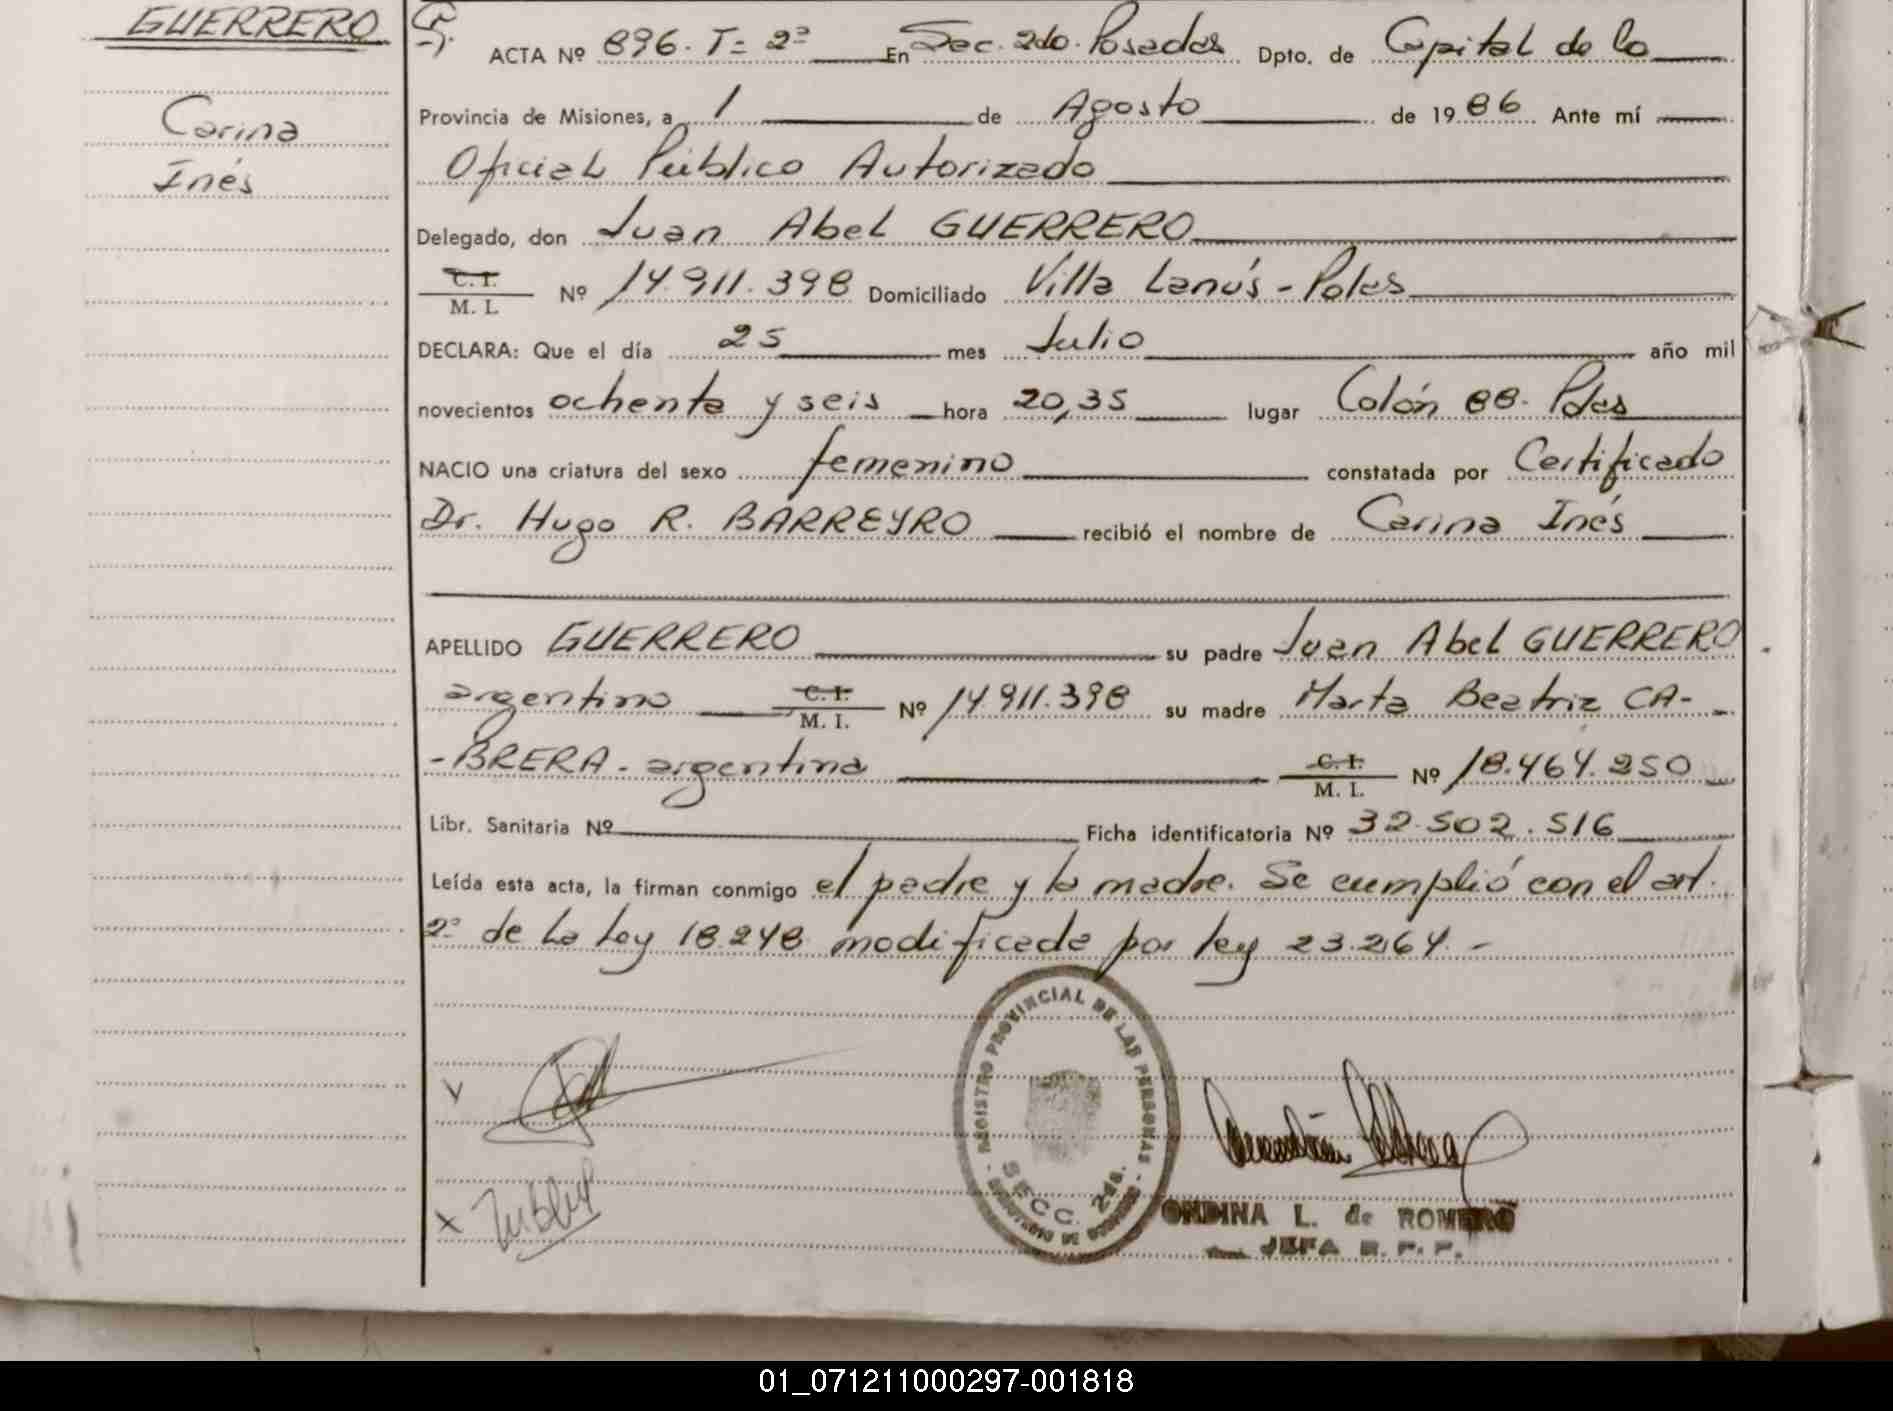 GUERRERO
Carina
Inés
ACTA Nº 896. T= 2º En Sec. 2do. Posadas Dpto. de Capital de la
Provincia de Misiones, a 1 de Agosto de 1986 Ante mí
Oficial Público Autorizado
Delegado, don Juan Abel GUERRERO
C. I. M. I. Nº 14.911.398 Domiciliado Villa Lanús - Pdas
DECLARA: Que el día 25 mes Julio año mil
novecientos ochenta y seis hora 20,35 lugar Colón 88. Pdas
NACIO una criatura del sexo femenino constatada por Certificado
Dr. Hugo R. BARREYRO recibió el nombre de Carina Inés
APELLIDO GUERRERO su padre Juan Abel GUERRERO
argentino C. I. M. I. Nº 14.911.398 su madre Marta Beatriz CA-
-BRERA - argentina C. I. M. I. Nº 18.464.250
Libr. Sanitaria Nº Ficha identificatoria Nº 32.502.516
Leída esta acta, la firman conmigo el padre y la madre. Se cumplió con el art.
2º de la Ley 18.248 modificada por ley 23.264. -
REGISTRO PROVINCIAL DE LAS PERSONAS
SECC. 2da.
ONDINA L. de ROMERO
JEFA R. P. P.
01_071211000297-001818